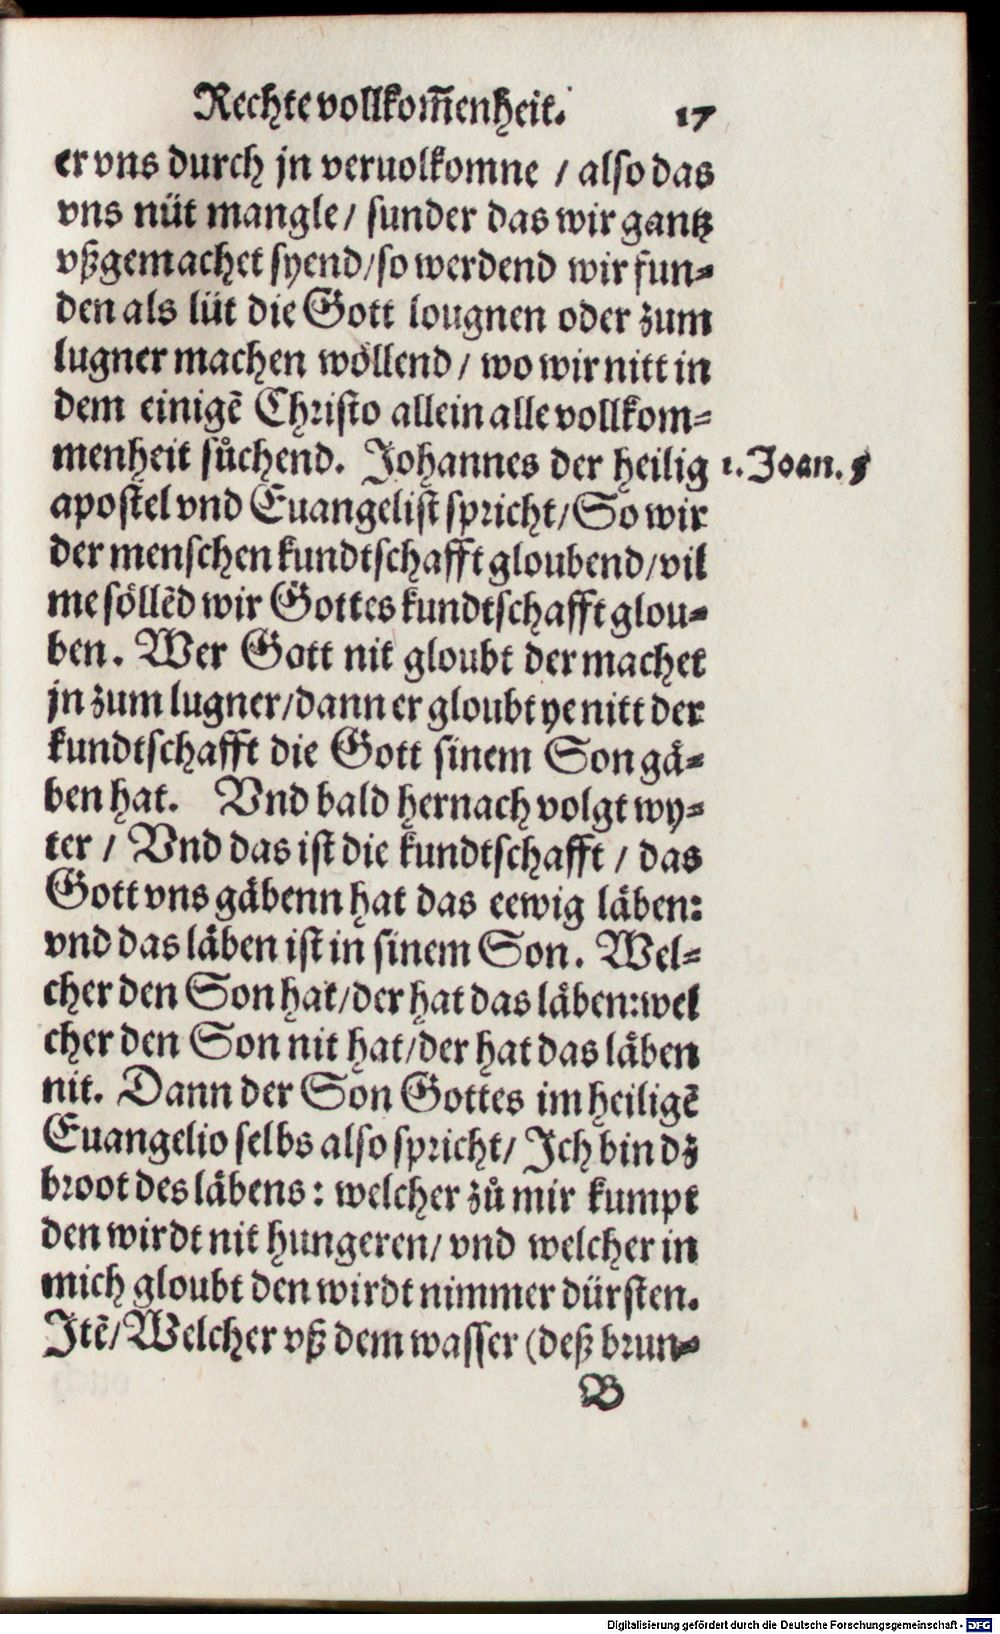 Rechte vollkom̃enheit. 17
er vns durch jn veruolkomne / also das
vns nüt mangle / sunder das wir gantz
vßgemachet syend / so werdend wir fun⸗
den als lüt die Gott lougnen oder zum
lugner machen wöllend / wo wir nitt in
dem einigẽ Christo allein alle vollkom⸗
menheit sůchend. Johannes der heilig
1. Joan. 5
apostel vnd Euangelist spricht / So wir
der menschen kundtschafft gloubend / vil
me söllẽd wir Gottes kundtschafft glou⸗
ben. Wer Gott nit gloubt der machet
jn zum lugner / dann er gloubt ye nitt der
kundtschafft die Gott sinem Son gä⸗
ben hat. Vnd bald hernach volgt wy⸗
ter / Vnd das ist die kundtschafft / das
Gott vns gäbenn hat das eewig läben:
vnd das läben ist in sinem Son. Wel⸗
cher den Son hat / der hat das läben: wel
cher den Son nit hat / der hat das läben
nit. Dann der Son Gottes im heiligẽ
Euangelio selbs also spricht / Ich bin dz
broot des läbens: welcher zů mir kumpt
den wirdt nit hungeren / vnd welcher in
mich gloubt den wirdt nimmer dürsten.
Itẽ / Welcher vß dem wasser (deß brun⸗
B
Digitalisierung gefördert durch die Deutsche Forschungsgemeinschaft - DFG